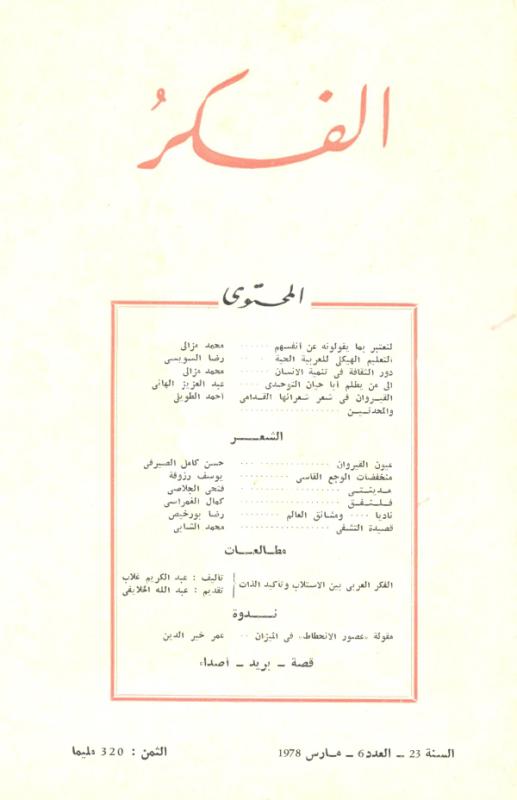 الفكر
المحتوى
لنعتبر بما يقولونه عن أنفسهم ...... محمد مزالى
التعليم الهيكلى للعربية الحية .... رضا السويسى
دور الثقافة فى تنمية الانسان .... محمد مزالى
الى من يظلم أبا حيان التوحيدى .... عبد العزيز الهانى
القيروان فى شعر شعرائها القدامى احمد الطويلى
والمحدثين ......................
الشعر
عيون القيروان ................ حسن كامل الصيرفى
منخفضات الوجع القاسى .......... يوسف رزوقة
مدينتى .................. فتحى الجلاصى
فلنتفق .................. كمال الغمراسى
ناديا ... ومشانق العالم ........ رضا بورخيص
قصيدة التشفى ................ محمد الشابى
مطالعات
الفكر العربى بين الاستلاب وتأكيد الذات
تاليف : عبد الكريم غلاب
تقديم : عبد الله الخلايفى
ندوة
مقولة «عصور الانحطاط» فى الميزان .. عمر خير الدين
قصة - بريد - أصداء
السنة 23 - العدد 6 - مارس 1978
الثمن : 320 مليما